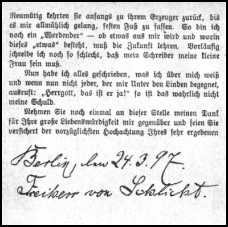 Reumütig kehrten sie anfangs zu ihrem Erzeuger zurück, bis
es mir allmählich gelang, festen Fuß zu fassen. So bin ich
noch ein „Werdender“ — ob etwas aus mir wird und worin
dieses „etwas“ besteht, muß die Zukunft lehren. Vorläufig
schreibe ich noch so schlecht, daß mein Schreiber meine kleine
Frau sein muß.
Nun habe ich alles geschrieben, was ich über mich weiß
und wenn nun nicht jeder, der mir Unter den Linden begegnet,
ausruft: „Herrgott, das ist er ja!“ so ist das wahrlich nicht
meine Schuld.
Nehmen Sie noch einmal an dieser Stelle meinen Dank
für Ihre große Liebenswürdigkeit mir gegenüber und seien Sie
versichert der vorzüglichsten Hochachtung Ihres sehr ergebenen
Berlin, den 24.3.97.
Freiherr von Schlicht.